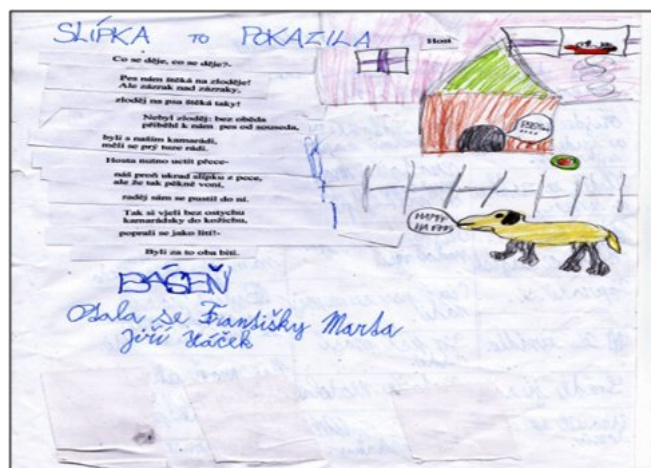 SLÍPKA TO POKAZILA
Host
Co se děje, co se děje?-
Pes nám štěká na zloděje!
Ale zázrak nad zázraky,
zloděj na psa štěká taky!
Nebyl zloděj: bez oběda
přiběhl k nám pes od souseda,
byli s naším kamarádi,
měli se prý tuze rádi.
Hosta nutno uctít přece-
náš proň ukrad slípku z pece,
ale že tak pěkně voní,
raděj sám se pustil do ní.
Tak si vjeli bez ostychu
kamarádsky do kožichu,
poprali se jako lítí!-
Byli za to oba biti.
BÁSEŇ
se Františky Marta
Jiří